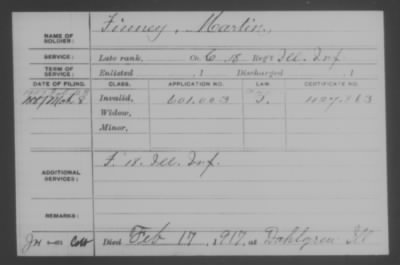 NAME OF SOLDIER: Finney, Martin,
SERVICE: Late rank, Co. C, 18 Reg't Ill. Inf.
TERM OF SERVICE: Enlisted , 1 Discharged , 1
DATE OF FILING. CLASS. APPLICATION NO. LAW. CERTIFICATE NO.
Mch 8 Invalid, 601.003
Widow,
Minor,
ADDITIONAL SERVICES: F. 18. Ill. Inf.
REMARKS:
Died Feb 17, 1917, at Dahlgren Ill